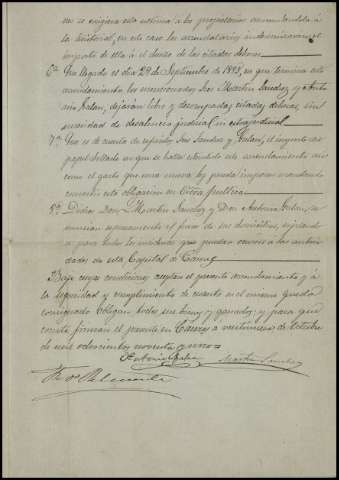 no se exigiera esta ultima a los propietarios acumulandola á
la territorial, en este caso los arrendatarios indemnizaran el
importe de ella á el dueño de las citadas dehesas
6ª Una llegado el dia 29 de Septiembre de 1895, en que termina este
arrendamiento los mencionados Sres Martin Sanchez y Antonio
Galan, dejarán libre y desocupadas, citadas dehesas, sin
necesidad de desahucio judicial ni extrajudicial
7ª Una es de cuenta de referidos Sres Sanchez y Galan, el importe del
papel sellado en que se halla estendido este arrendamiento asi
como el gasto que una nueva ley pueda imponer mandando
convertir esta obligacion en Escra publica
8ª Dichos Don Martin Sanchez y Don Antonio Galan, se
someten espresamente el fuero de sus domicilios, sujetandose
para todos los incidentes que puedan ocurrir á las autoridades
de esta Capital de Cáceres
Bajo cuyas condiciones aceptan el presente arrendamiento y á
la seguridad y cumplimiento de cuanto en el mismo queda
consignado obligan todos sus bienes y ganados; y para que
conste firman el presente en Cáceres a veintiuno de Octubre
de mil ochocientos noventa y uno=
Antonio Galan Martin Sanchez